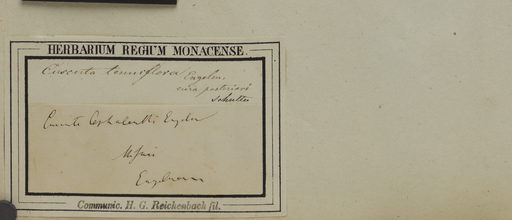 HERBARIUM REGIUM MONACENSE.
Cuscuta tenuiflora Engelm.
cura posteriori
Schultes
Cuscuta Cephalanthi Engelm
Missouri
Engelmann
Communic. H. G. Reichenbach fil.